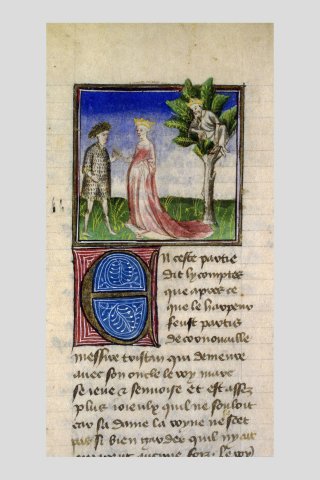 En ceste partie
dit ly comptes
que apres ce
que le harpeur
feust partis
de cornouaille
messire tristan qui demeure
auec son oncle le roy marc
se ieue et enuoise et est assez
plus ioieulx quil ne souloit
car sa dame la royne ne scet
pas si bien garder quil ny ait